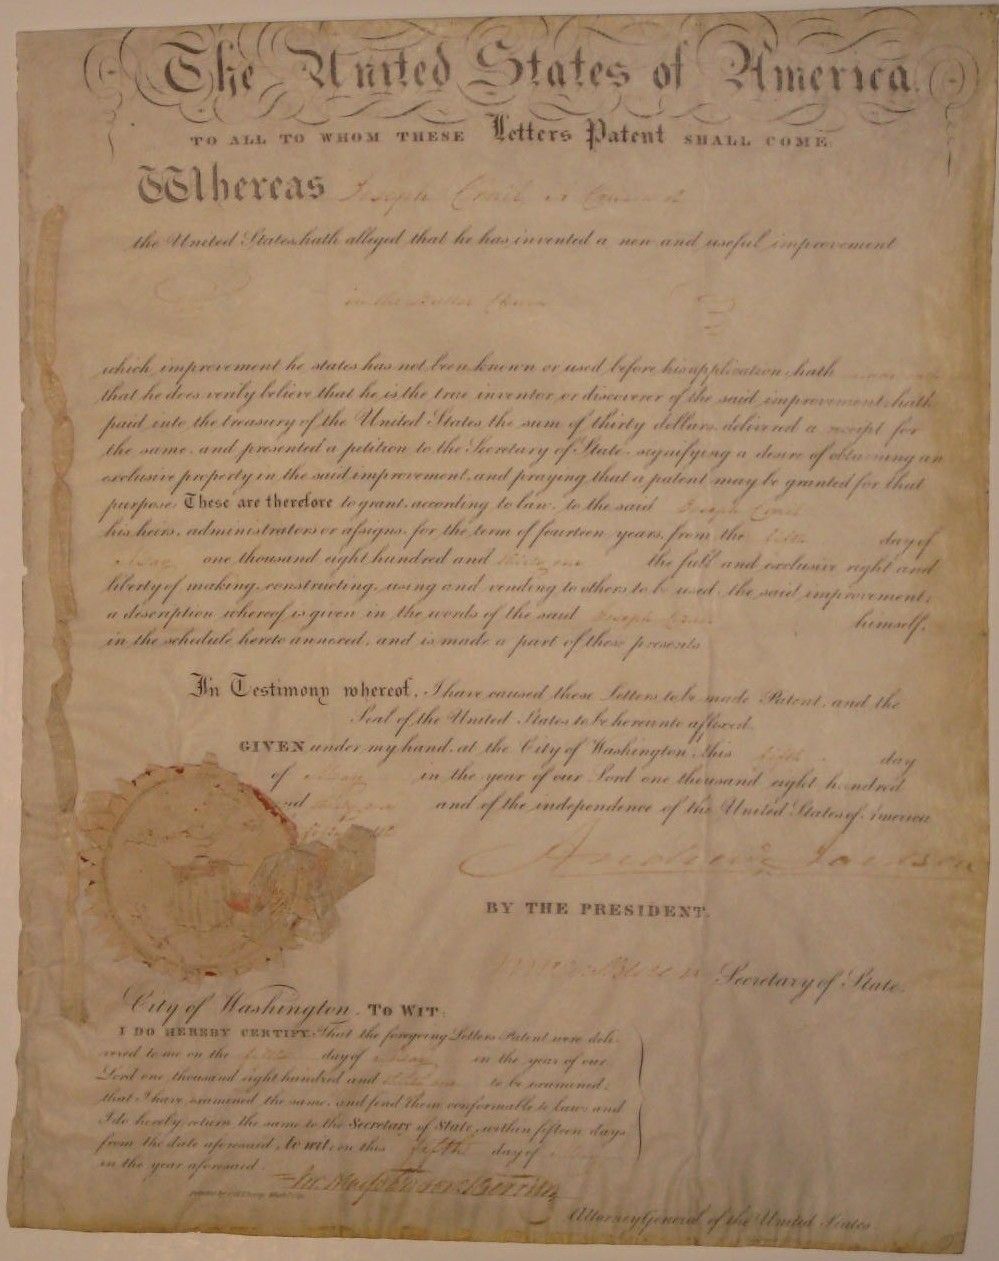 The United States of America.
TO ALL TO WHOM THESE Letters Patent SHALL COME:
Whereas Joseph
the United States, hath alleged that he has invented a new and useful improvement
in the
which improvement he states has not been known or used before his application, hath
that he does verily believe that he is the true inventor or discoverer of the said improvement, hath
paid into the treasury of the United States the sum of thirty dollars, delivered a receipt for
the same, and presented a petition to the Secretary of State, signifying a desire of obtaining an
exclusive property in the said improvement, and praying that a patent may be granted for that
purpose. These are therefore to grant, according to law, to the said Joseph
his heirs, administrators or assigns, for the term of fourteen years, from the fifth day of
May one thousand eight hundred and thirty one the full and exclusive right and
liberty of making, constructing, using and vending to others to be used, the said improvement,
a description whereof is given in the words of the said Joseph himself,
in the schedule hereto annexed, and is made a part of these presents.
In Testimony whereof, I have caused these Letters to be made Patent, and the
Seal of the United States to be hereunto affixed.
GIVEN under my hand, at the City of Washington, this fifth day
of May in the year of our Lord one thousand eight hundred
and thirty one and of the independence of the United States of America
Andrew Jackson
BY THE PRESIDENT.
Secretary of State.
City of Washington, TO WIT:
I DO HEREBY CERTIFY, That the foregoing Letters Patent were deli-
vered to me on the fifth day of May in the year of our
Lord one thousand eight hundred and thirty one to be examined;
that I have examined the same, and find them conformable to law; and
I do hereby return the same to the Secretary of State, within fifteen days
from the date aforesaid, to wit: on this fifth day of May
in the year aforesaid.
Berrien
Attorney General of the United States.